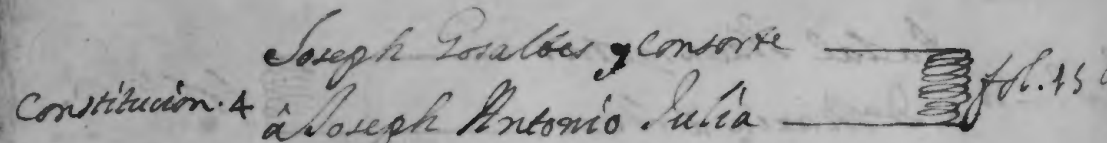 Joseph Gosalbes y Consorte
Constitucion. 4 â Joseph Antonio Julia fol. 45